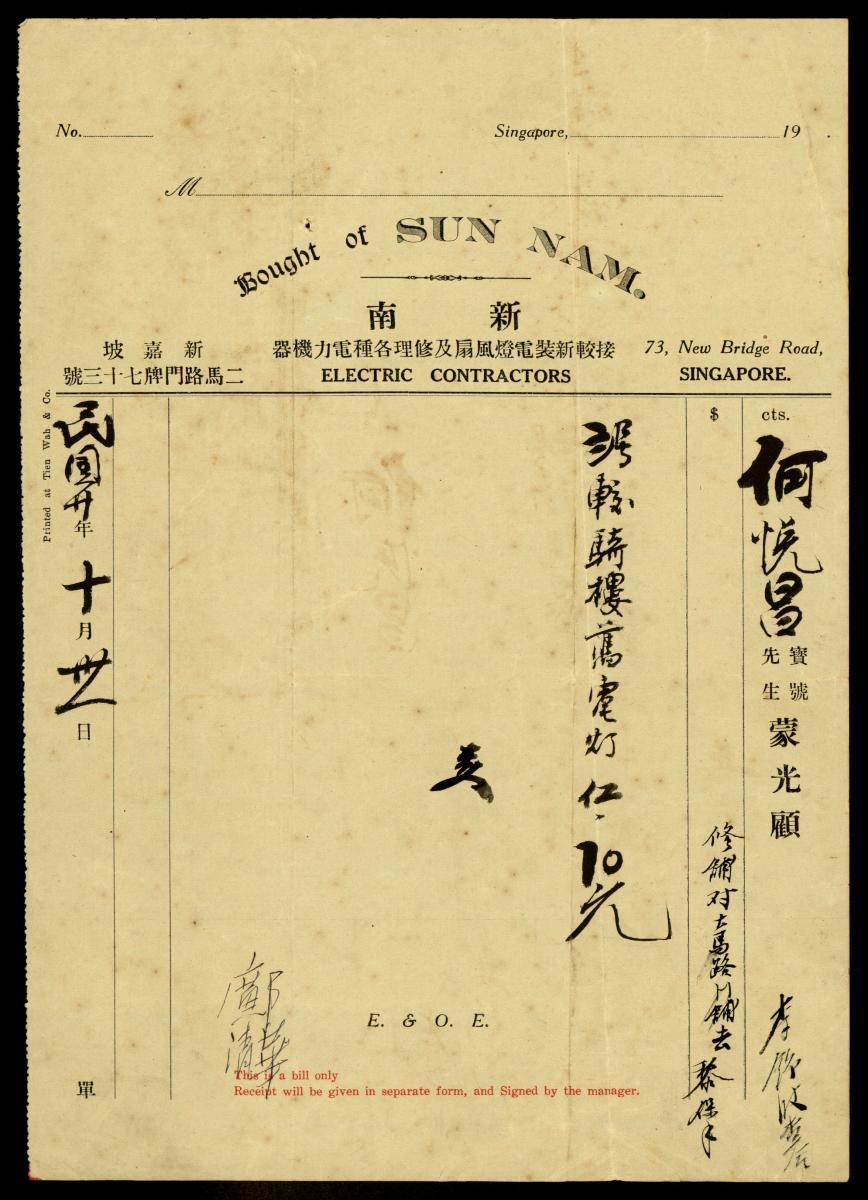 No.
Singapore, 19
M
Bought of SUN NAM.
南新
器機力電種各理修及扇風燈電裝新較接
ELECTRIC CONTRACTORS
73, New Bridge Road,
SINGAPORE.
坡嘉新
號三十七牌門路馬二
$ cts.
何悅昌
寶號
先生
蒙光顧
修舖对大馬路川舖去
較騎樓舊電灯
10元
民國廿年十月卅一日
單
鄺清華
E. & O. E.
This is a bill only
Receipt will be given in separate form, and Signed by the manager.
Printed at Tien Wah & Co.